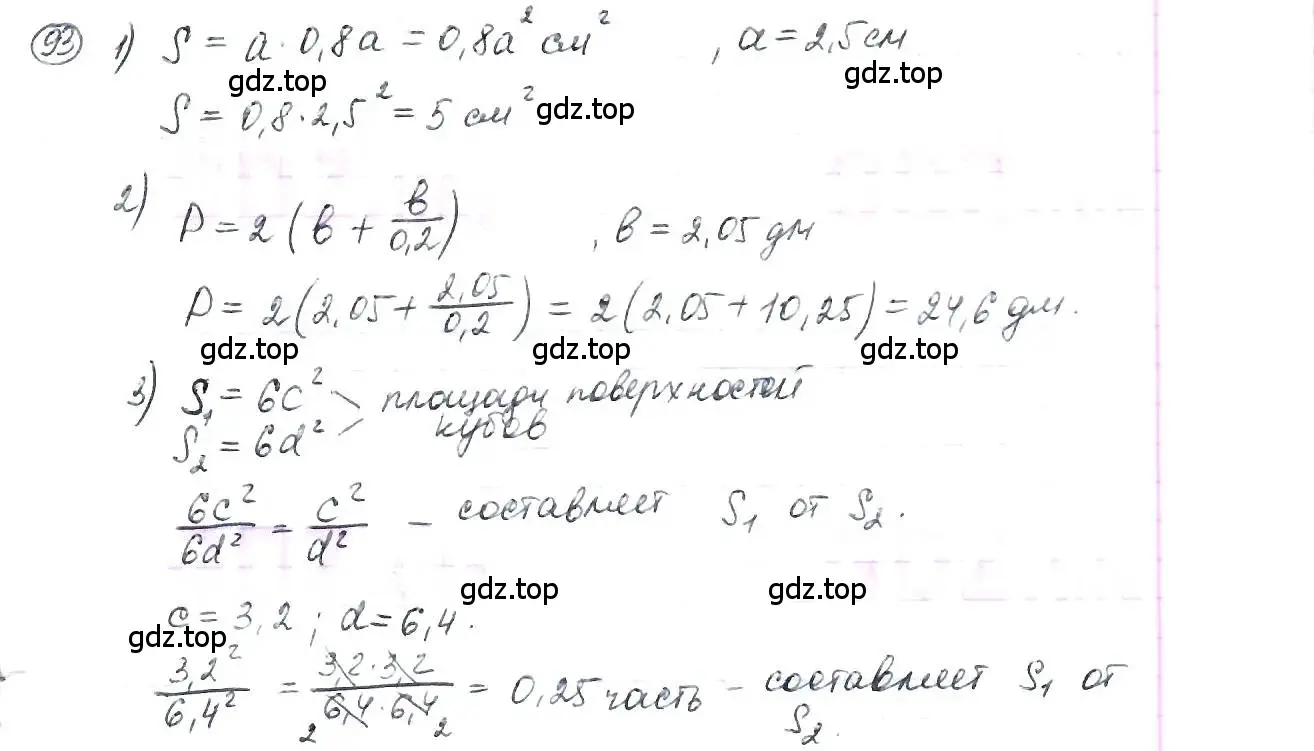 93 1) S = a · 0,8a = 0,8a² см², a = 2,5 см
gdz.top
gdz.top
S = 0,8 · 2,5² = 5 см² gdz.top
2) P = 2 (в + в/0,2), в = 2,05 дм
P = 2 (2,05 + 2,05/0,2) = 2 (2,05 + 10,25) = 24,6 дм.
gdz.top gdz.top gdz.top
3) S₁ = 6c² \ площади поверхностей
S₂ = 6d² / кубов
6c²/6d² = c²/d² – составляет S₁ от S₂.
gdz.top gdz.top
c = 3,2 ; d = 6,4.
gdz.top
3,2²/6,4² = 3,2 · 3,2/6,4 · 6,4 = 0,25 часть – составляет S₁ от
2 2 S₂.